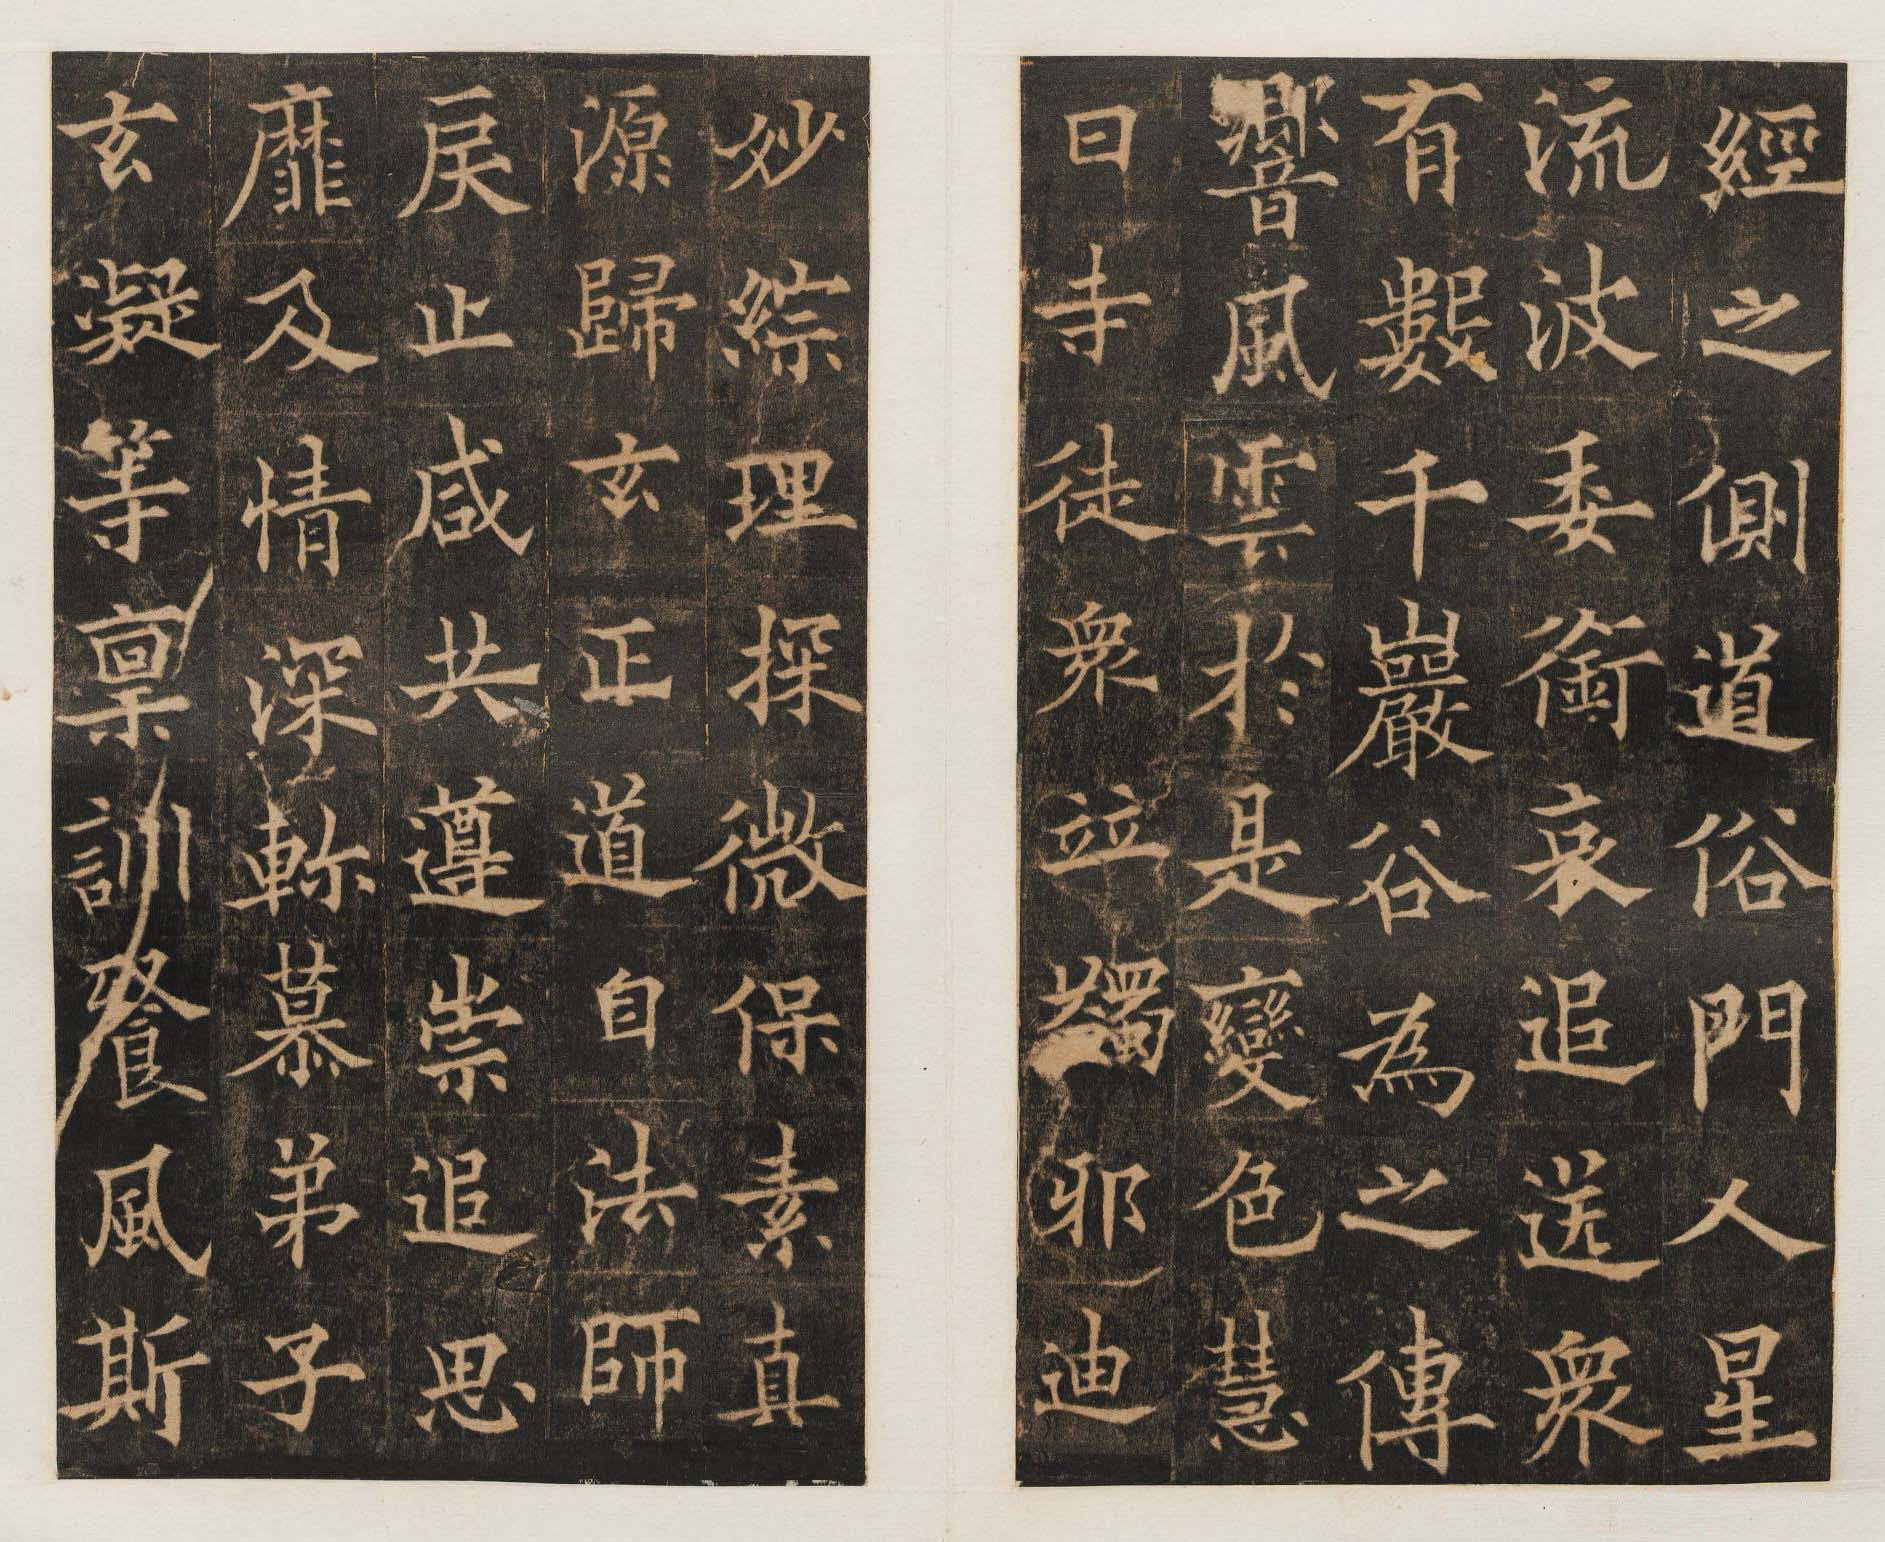 經之側道俗門人星
流波委銜哀追送衆
有數千巖谷為之傳
響風雲於是變色慧
日寺徒衆竝獨邪迪
妙綜理探微保素真
源歸玄正道自法師
戾止咸共遵崇追思
靡及情深軫慕弟子
玄凝等禀訓飡風斯